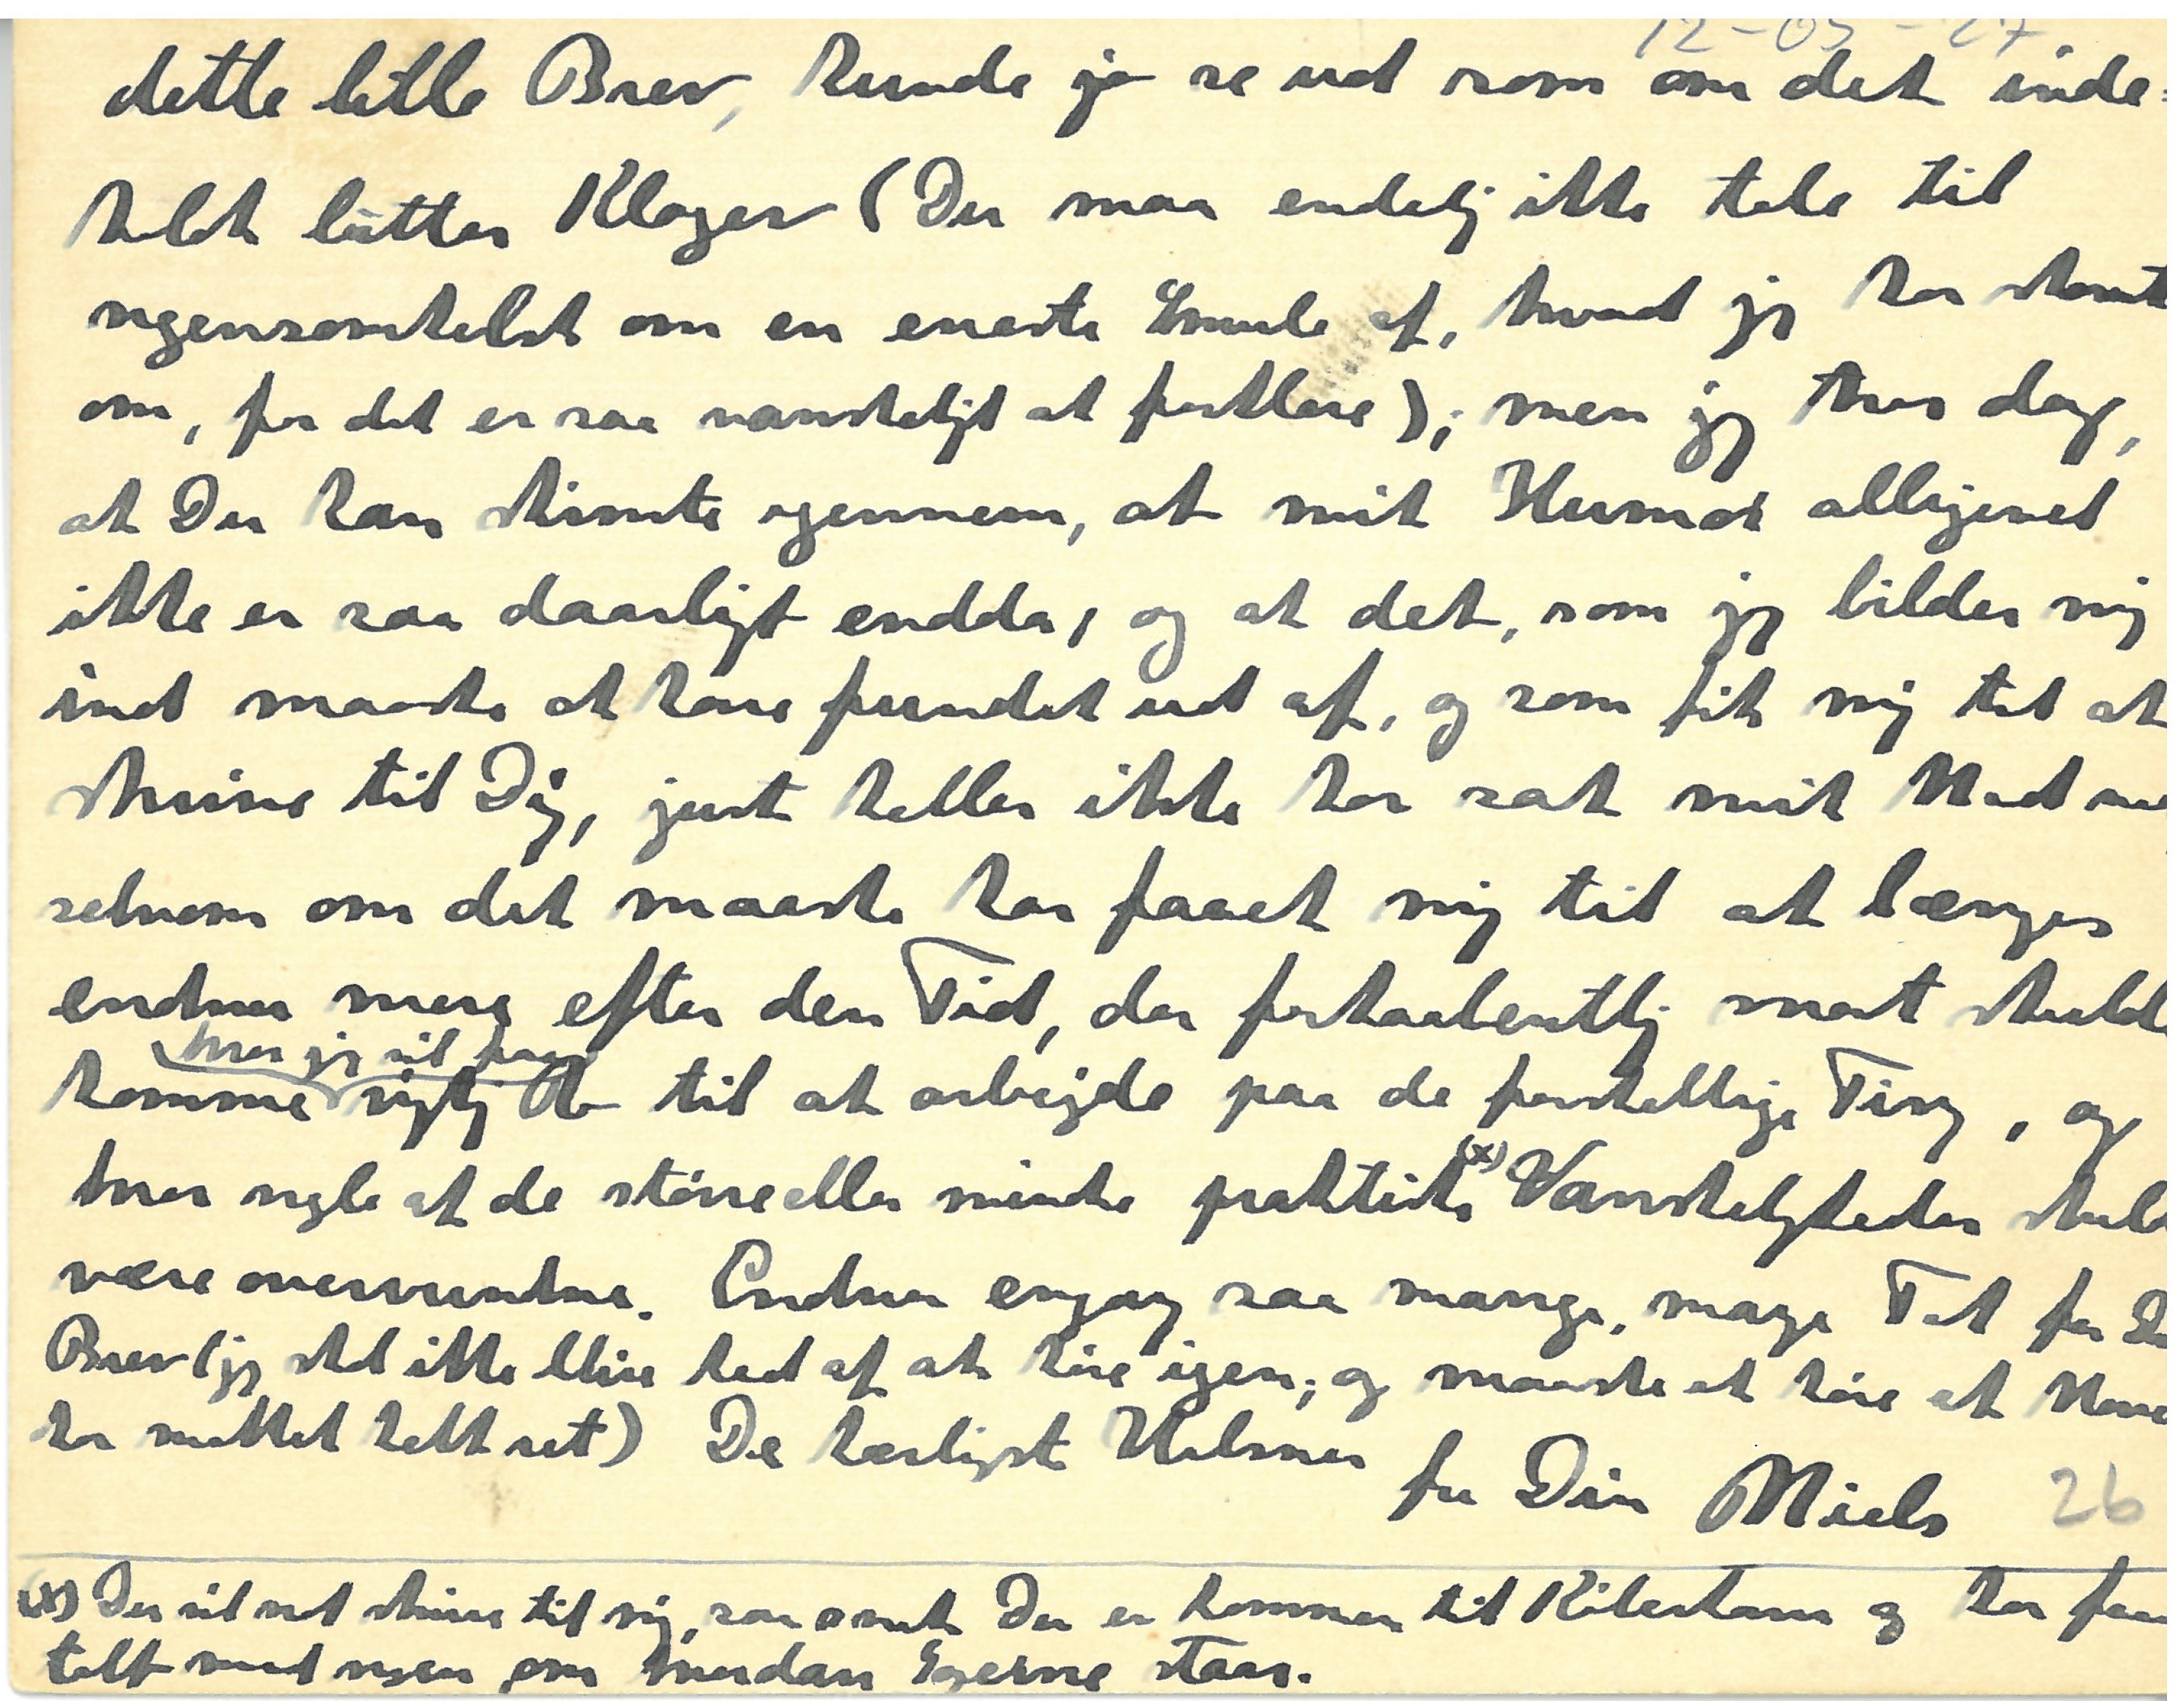 12-05-27
dette lille Brev, kunde jo se ud som om det inde=
holdt lutter Klager (Du maa endelig ikke tale til
nogensomhelst om en eneste Smule af, hvad jeg har skrevet
om, for det er saa vanskeligt at forklare); men jeg tror dog,
at Du kan skimte igennem, at mit Humør alligevel
ikke er saa daarligt endda, og at det, som jeg bilder mig
ind maaske at have fundet ud af, og som fik mig til at
skrive til Dig, just heller ikke har sat mit Mod ned
selvom om det maaske har faaet mig til at længes
endnu mere efter den Tid, der forhaabentlig snart skulde
komme hvor jeg vil faa rigtig Ro til at arbejde paa de forskellige Ting, og
hvor nogle af de större eller mindre praktiske (x) Vanskeligheder skulde
være overvundne. Endnu engang saa mange, mange Tak for Dit
Brev (jeg skal ikke blive ked af at höre igen; og maaske at höre at Mama
har mattet helt ret) De kærligste Hilsner
fra Din Niels 26
(x) Du vil nok skrive til mig, saa snart Du er kommen til Köbenhavn og har faaet
talt med nogen om hvordan Sagerne staar.